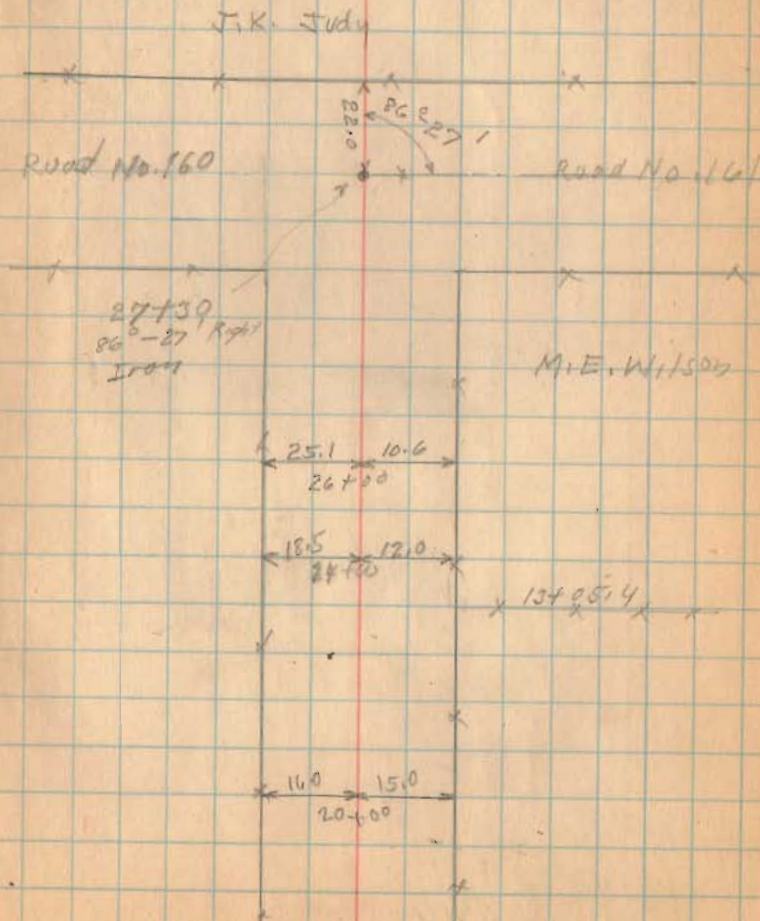 J.K. Judy
22.0
86° 27'
Road No. 160
Road No. 161
27+39
86°-27' Right
Iron
M.E. Wilson
25.1 10.6
26+00
18.5 12.0
24+00
13+05.4
16.0 15.0
20+00